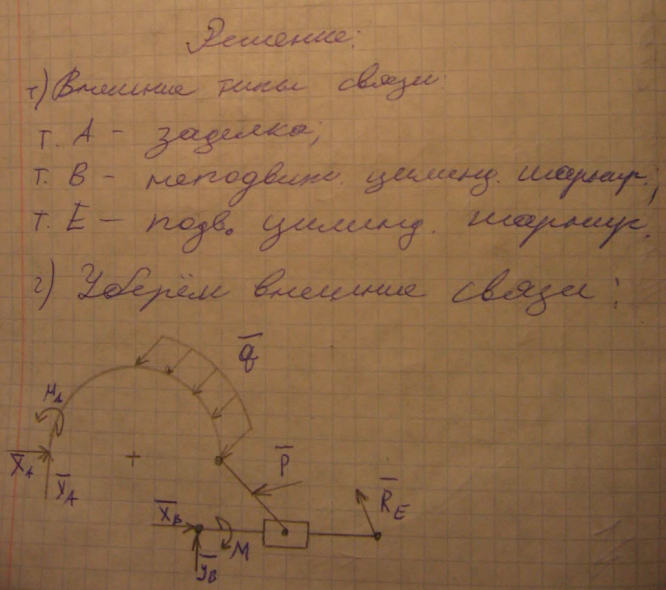 Решение:
1) Внешние типы связи:
т. A – заделка;
т. B – неподвиж. цилинд. шарнир;
т. E – подв. цилинд. шарнир.
2) Уберём внешние связи:
q
M_A
X_A
Y_A
P
R_E
X_B
M
Y_B